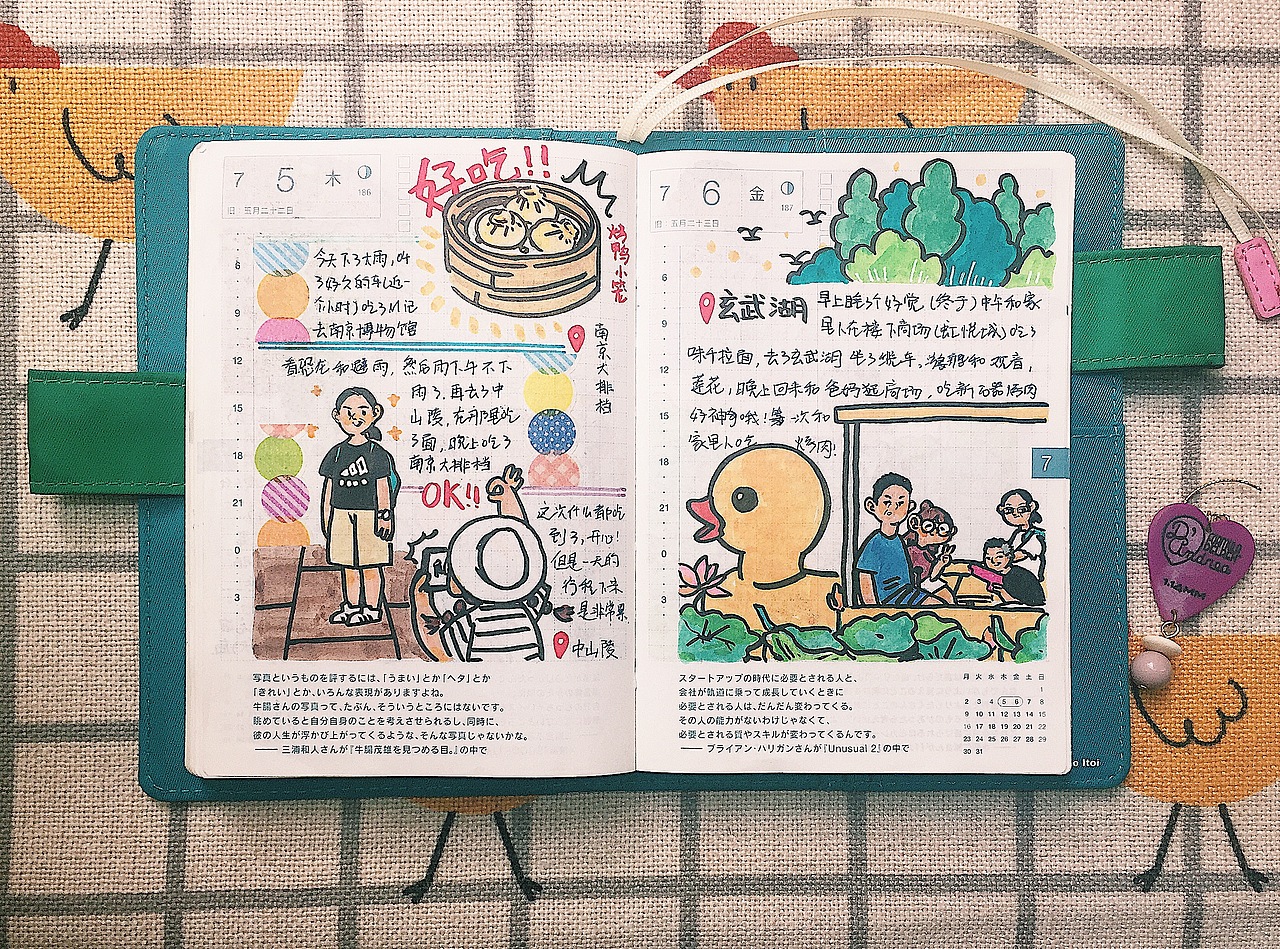 7 5 木
186
旧 五月二十二日
好吃!!
烤鸭小笼
6
9
12
15
18
21
0
3
今天下了大雨,叫
了好久的车(近一
个小时)吃了M记
去南京博物馆
南京大排档
看恐龙和避雨,然后雨下午不下
雨了,再去了中
山陵,在那里吃
了面,晚上吃了
南京大排档
OK!!
这次什么都吃
到了,开心!
但是一天的
行程下来
是非常累
中山陵
写真というものを評するには、「うまい」とか「ヘタ」とか
「きれい」とか、いろんな表現がありますよね。
牛腸さんの写真って、たぶん、そういうところにはないです。
眺めていると自分自身のことを考えさせられるし、同時に、
彼の人生が浮かび上がってくるような、そんな写真じゃないかな。
―― 三浦和人さんが『牛腸茂雄を見つめる目。』の中で
7 6 金
187
旧 五月二十三日
6
9
12
15
18
21
0
3
玄武湖
早上睡了个好觉(终于)中午和家
里人在楼下商场(虹悦城)吃了
味千拉面,去了玄武湖 坐了缆车,
莲花,晚上回来和爸妈逛商场,吃新石器烤肉
好神奇哦!第一次和
家里人吃 烤肉!
7
スタートアップの時代に必要とされる人と、
会社が軌道に乗って成長していくときに
必要とされる人は、だんだん変わってくる。
その人の能力がないわけじゃなくて、
必要とされる質やスキルが変わってくるんです。
―― ブライアン・ハリガンさんが『Unusual 2』の中で
月 火 水 木 金 土 日
1
2 3 4 5 6 7 8
9 10 11 12 13 14 15
16 17 18 19 20 21 22
23 24 25 26 27 28 29
30 31
o Itoi
1.14MM